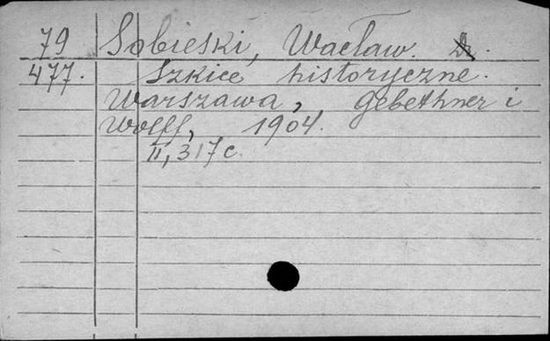 79 Sobieski, Wacław. Dr.
477. Szkice historyczne.
Warszawa, Gebethner i
Wolff, 1904.
II, 317 c.